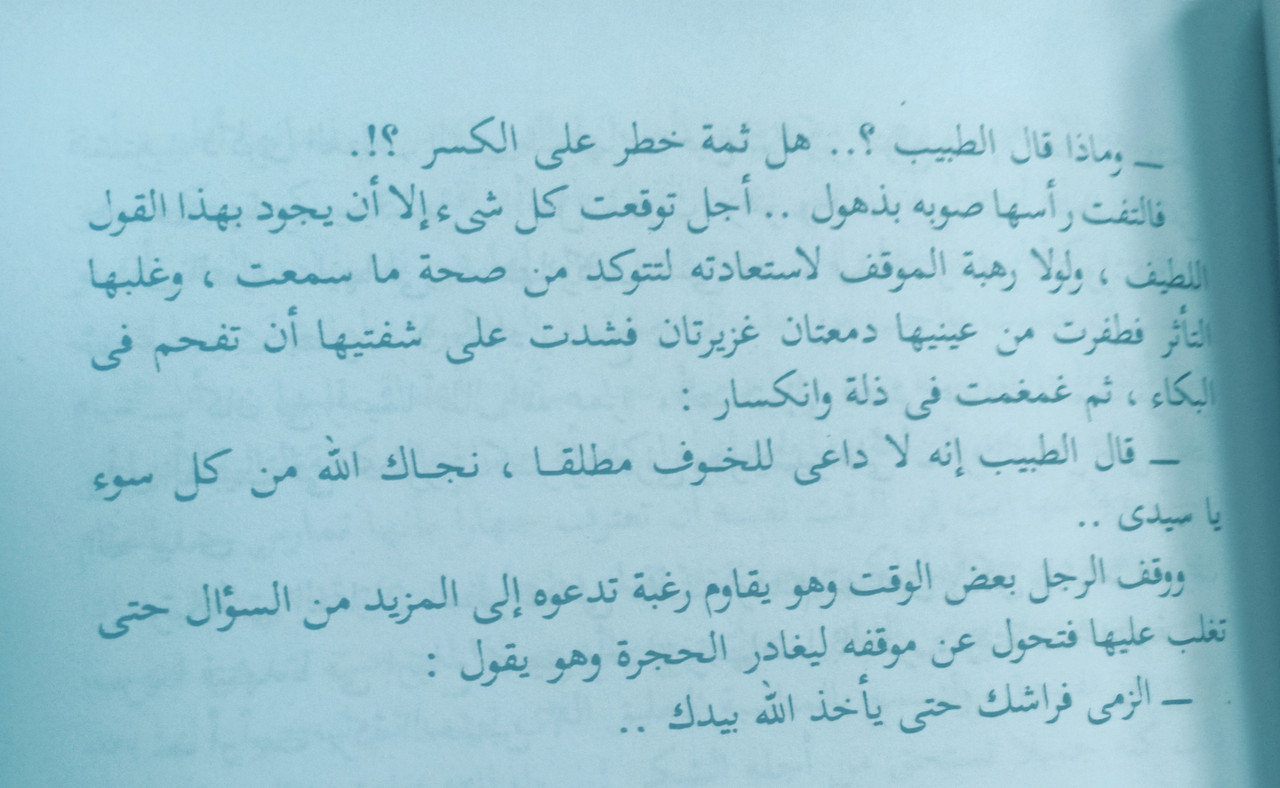 ـ وماذا قال الطبيب ؟.. هل ثمة خطر على الكسر ؟!.
فالتفت رأسها صوبه بذهول .. أجل توقعت كل شىء إلا أن يجود بهذا القول
اللطيف ، ولولا رهبة الموقف لاستعادته لتتوكد من صحة ما سمعت ، وغلبها
التأثر فطفرت من عينيها دمعتان غزيرتان فشدت على شفتيها أن تفحم فى
البكاء ، ثم غمغمت فى ذلة وانكسار :
ـ قال الطبيب إنه لا داعى للخوف مطلقا ، نجاك الله من كل سوء
يا سيدى ..
ووقف الرجل بعض الوقت وهو يقاوم رغبة تدعوه إلى المزيد من السؤال حتى
تغلب عليها فتحول عن موقفه ليغادر الحجرة وهو يقول :
ـ الزمى فراشك حتى يأخذ الله بيدك ..